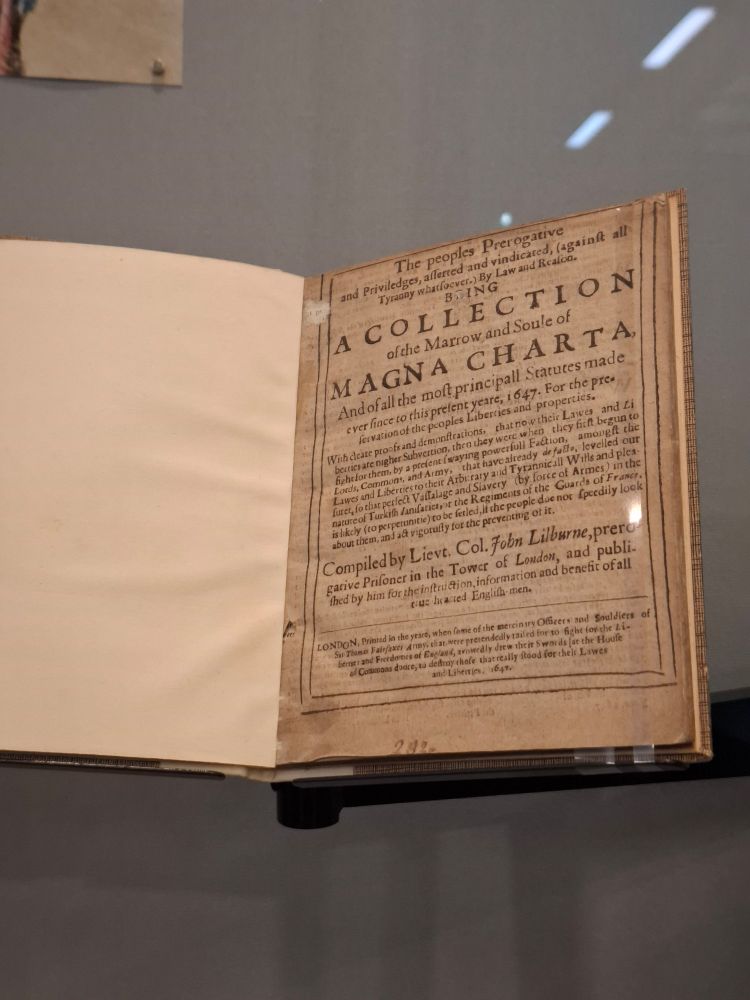 The peoples Prerogative
and Priviledges, asserted and vindicated, (against all
Tyranny whatsoever.) By Law and Reason.
BEING
A COLLECTION
of the Marrow and Soule of
MAGNA CHARTA,
And of all the most principall Statutes made
ever since to this present yeare, 1647. For the pre-
servation of the peoples Liberties and properties.
With cleare proofs and demonstrations, that now their Lawes and Li
berties are nigher Subvertion, then they were when they first begun to
fight for them, by a present swaying powerfull Faction, amongst the
Lords, Commons, and Army, that have already de facto, levelled our
Lawes and Liberties to their Arbitrary and Tyrannicall Wills and plea-
sures, so that perfect Vassalage and Slavery (by force of Armes) in the
nature of Turkish Janisaries, or the Regiments of the Guards of France,
is likely (to perpetuitie) to be setled, if the people doe not speedily look
about them, and act vigorusly for the preventing of it.
Compiled by Lievt. Col. John Lilburne, prero-
gative Prisoner in the Tower of London, and publi-
shed by him for the instruction, information and benefit of all
true hearted English-men.
LONDON, Printed in the yeare, when some of the mercinary Officers and Souldiers of
Sir Thomas Fairfaxes Army, that were pretendedly raised for to fight for the Li-
berties and Freedomes of England, avowedly drew their Swords at the House
of Commons doore, to destroy those that really stood for their Lawes
and Liberties, 1647.